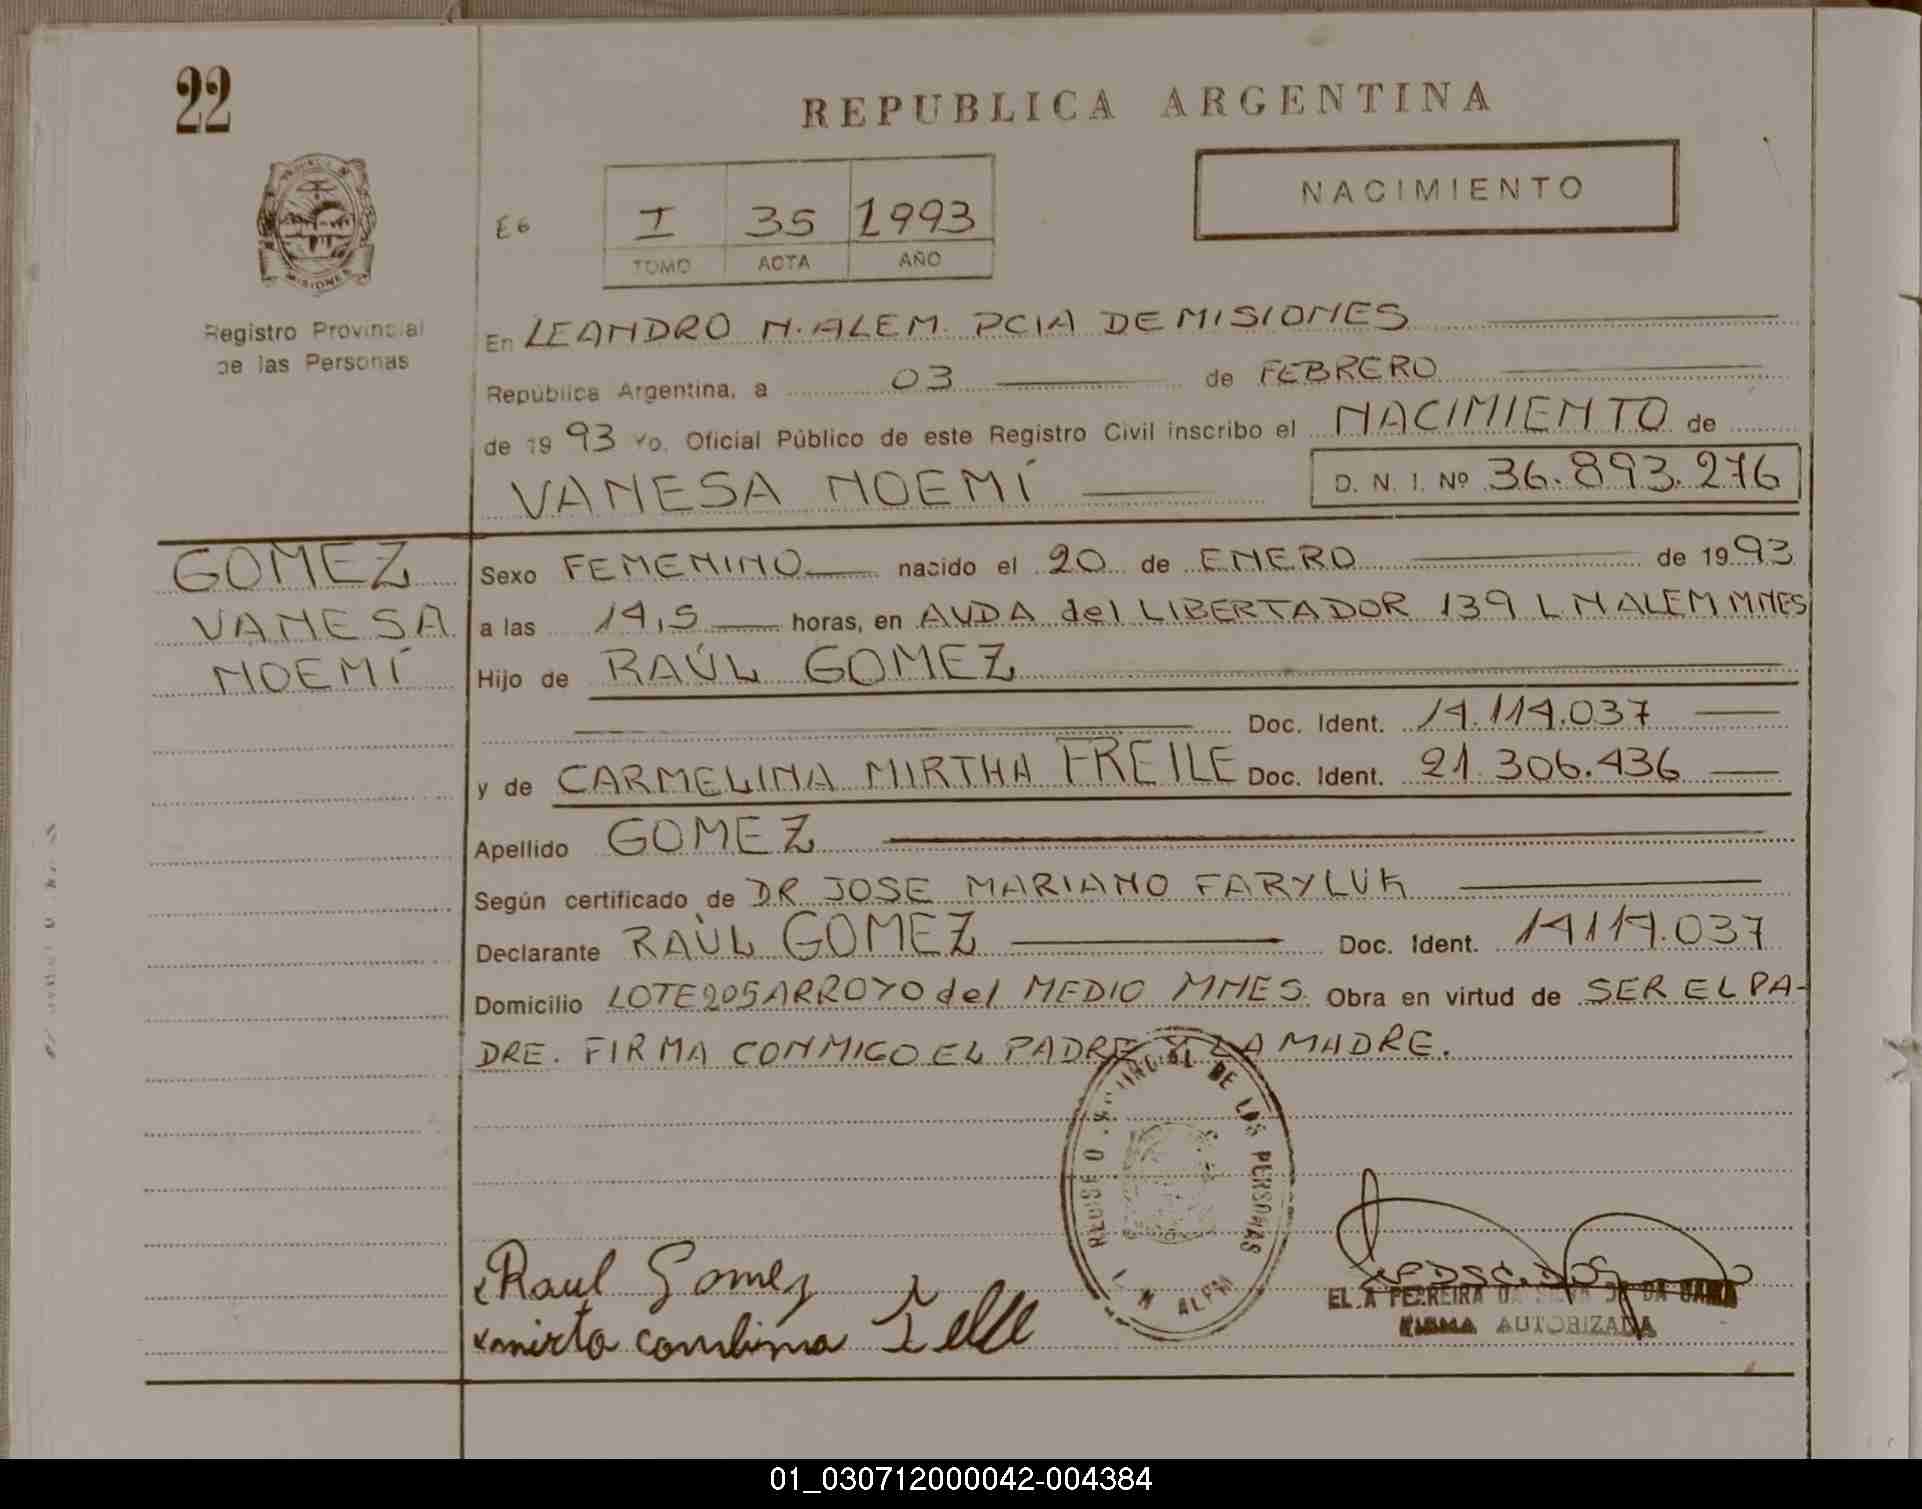 22
REPUBLICA ARGENTINA
NACIMIENTO
E6
I 35 1993
TOMO ACTA AÑO
MISIONES
Registro Provincial
de las Personas
En LEANDRO N. ALEM. PCIA DE MISIONES
República Argentina, a 03 de FEBRERO
de 1993 Yo, Oficial Público de este Registro Civil inscribo el NACIMIENTO de
VANESA NOEMÍ D. N. I. Nº 36.893.276
GOMEZ
VANESA
NOEMÍ
Sexo FEMENINO nacido el 20 de ENERO de 1993
a las 14,5 horas, en AVDA del LIBERTADOR 139 L N ALEM MNES
Hijo de RAÚL GOMEZ
Doc. Ident. 14.114.037
y de CARMELINA MIRTHA FREILE Doc. Ident. 21.306.436
Apellido GOMEZ
Según certificado de DR JOSE MARIANO FARYLUK
Declarante RAÙL GOMEZ Doc. Ident. 14114.037
Domicilio LOTE 205 ARROYO del MEDIO MNES. Obra en virtud de SER EL PA-
DRE. FIRMA CONMIGO EL PADRE Y LA MADRE.
REGISTRO PROVINCIAL DE LAS PERSONAS
L N ALEM
Raul Gomez
mirta
FERREIRA DA
FIRMA AUTORIZADA
01_030712000042-004384